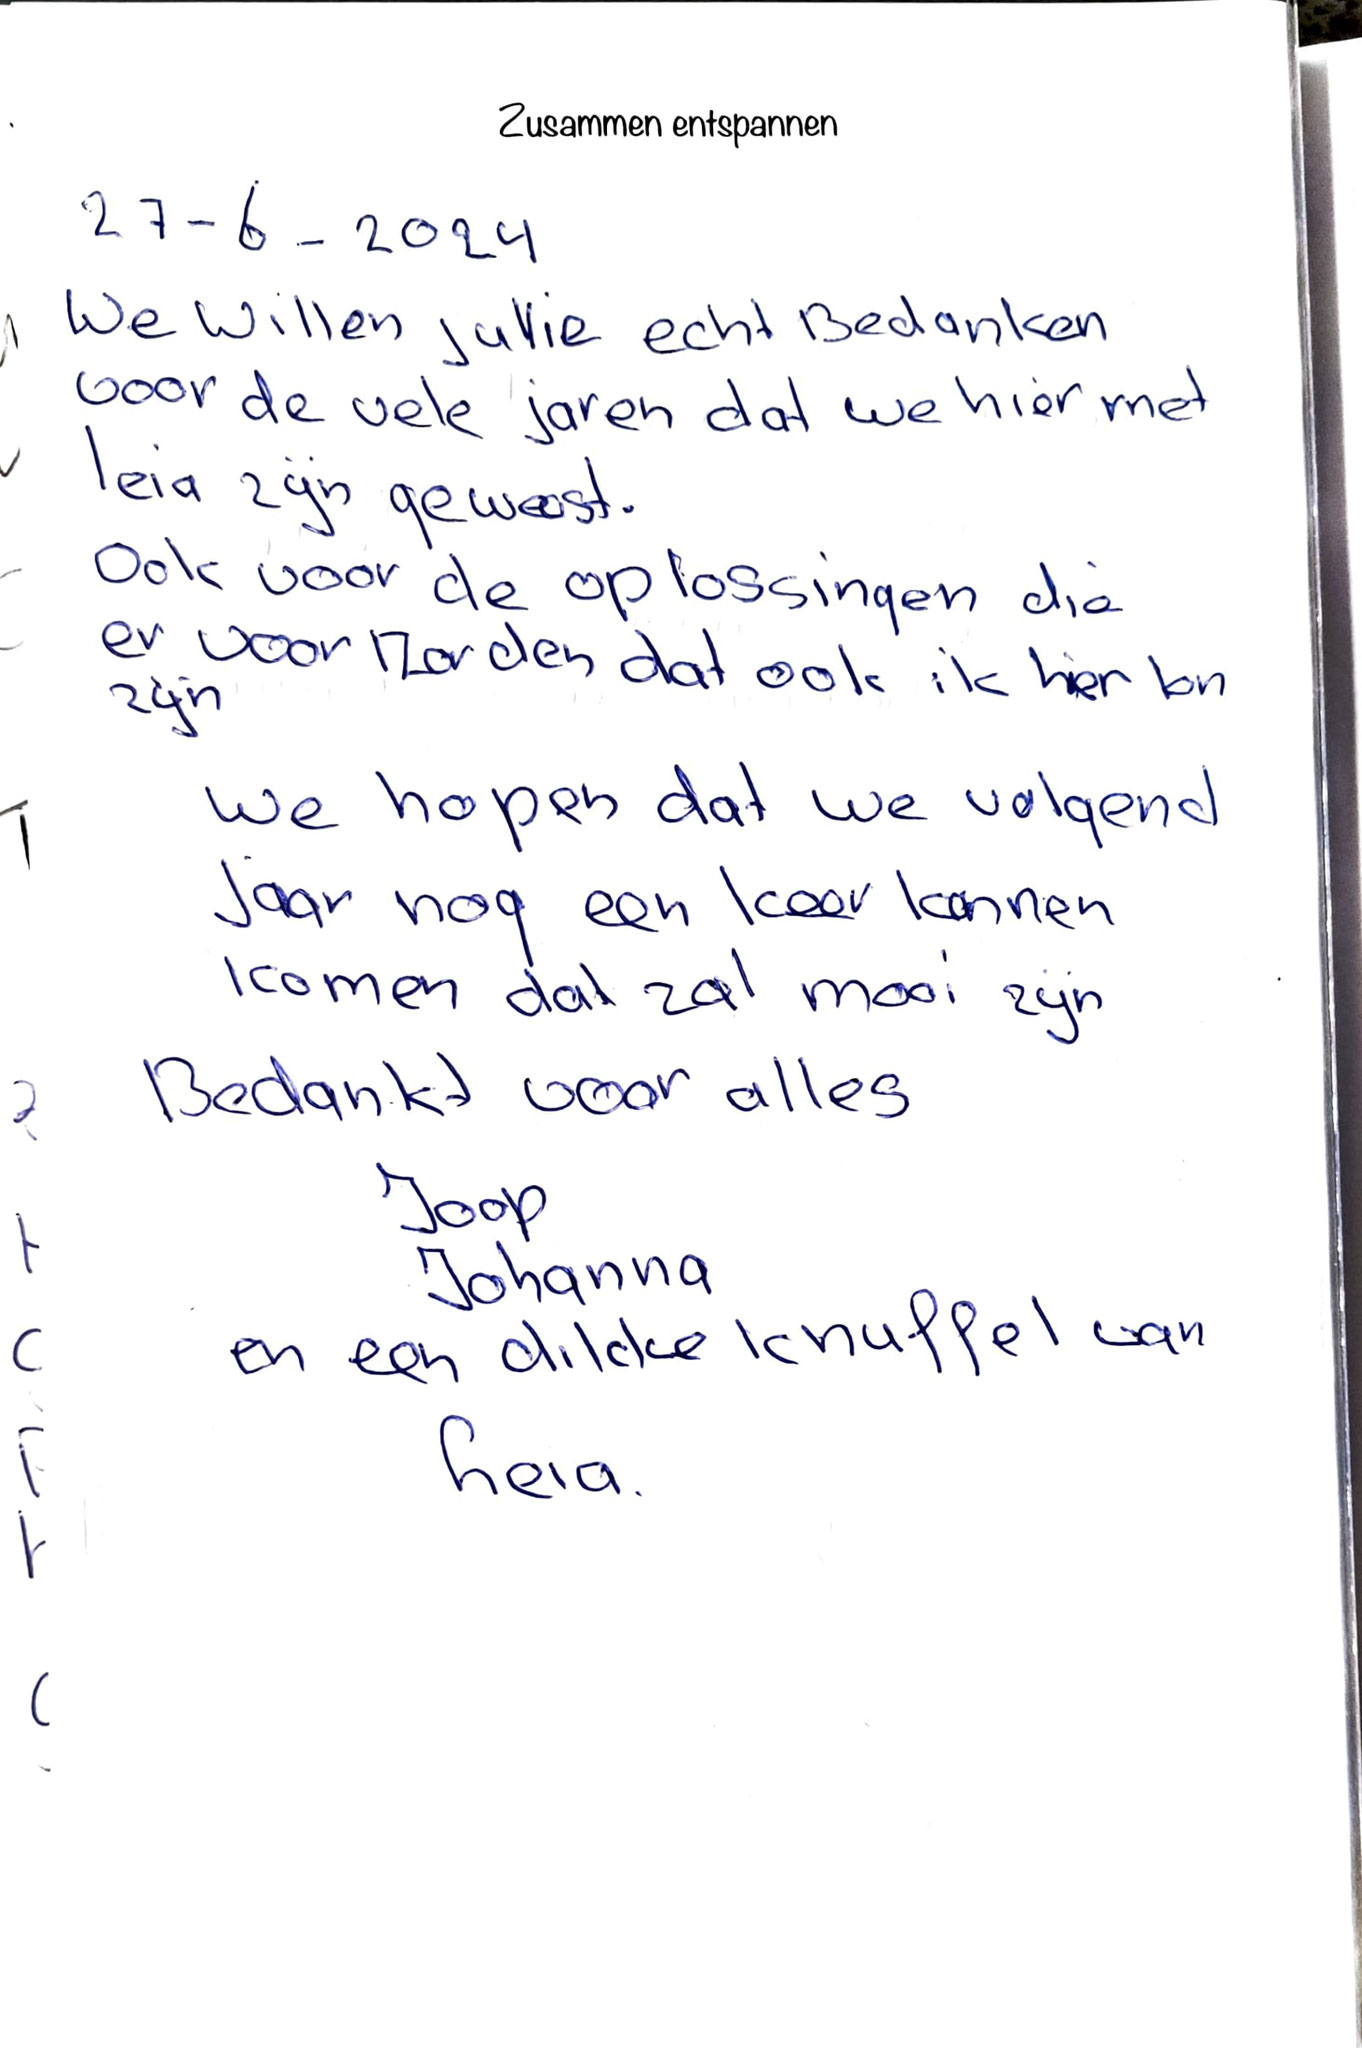 Zusammen entspannen
27-6-2024
We willen jullie echt Bedanken
voor de vele jaren dat we hier met
leia zijn geweest.
Ook voor de oplossingen die
er voor dat ook ik hier
zijn
We hopen dat we volgend
Jaar nog een keer kannen
komen dat zal mooi zijn
Bedankt voor alles
Joop
Johanna
en een dikke knuffel van
leia.